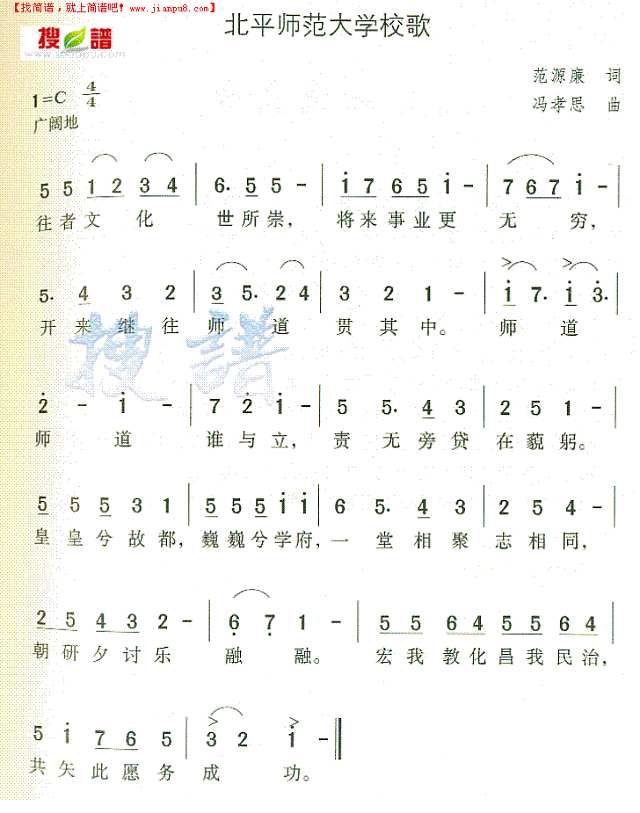 【找简谱，就上简谱吧！】 www.jianpu8.com
搜谱
www.sooopu.com
北平师范大学校歌
范源廉 词
1=C 4/4
冯孝思 曲
广阔地
5 5 1 2 3 4 | 6. 5 5 - | i 7 6 5 i | 7 6 7 i - |
往者文化 世所崇，将来事业更 无 穷，
5. 4 3 2 | 3 5. 2 4 | 3 2 1 - | i 7. i 3. |
开来继往 师 道 贯其中。师 道
2 - i - | 7 2 i - | 5 5. 4 3 | 2 5 1 - |
师 道 谁与立，责 无旁贷在藐躬。
5 5 5 3 1 | 5 5 5 i i | 6 5. 4 3 | 2 5 4 - |
皇皇兮故都，巍巍兮学府，一堂相聚志相同，
2 5 4 3 2 - | 6 7 1 - | 5 5 6 4 5 5 6 4 |
朝研夕讨乐 融 融。宏我教化昌我民治，
5 i 7 6 5 | 3 2 i - ‖
共矢此愿务 成 功。
搜谱